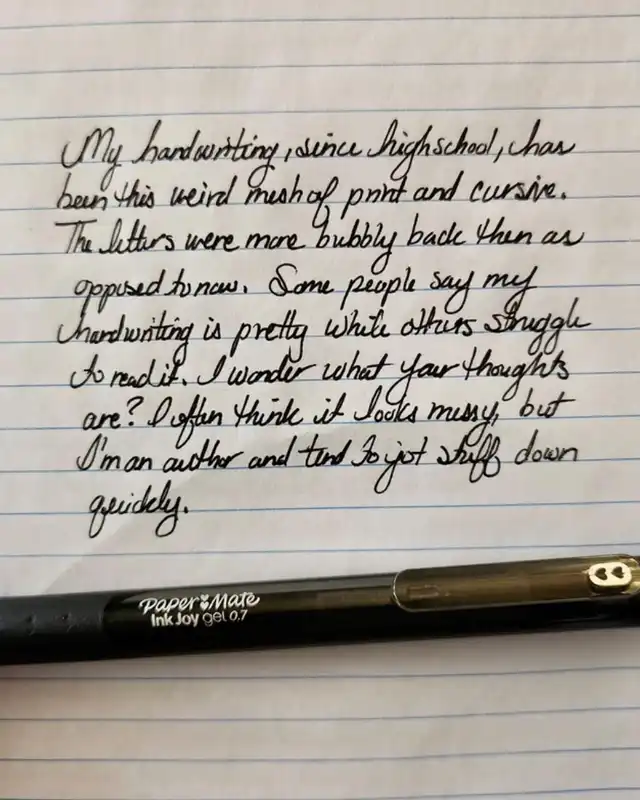 My handwriting, since highschool, has
been this weird mesh of print and cursive.
The letters were more bubbly back then as
opposed to now. Some people say my
handwriting is pretty while others struggle
to read it. I wonder what your thoughts
are? I often think it looks messy, but
I'm an author and tend to jot stuff down
quickly.
PAPER MATE
InkJoy gel 0.7